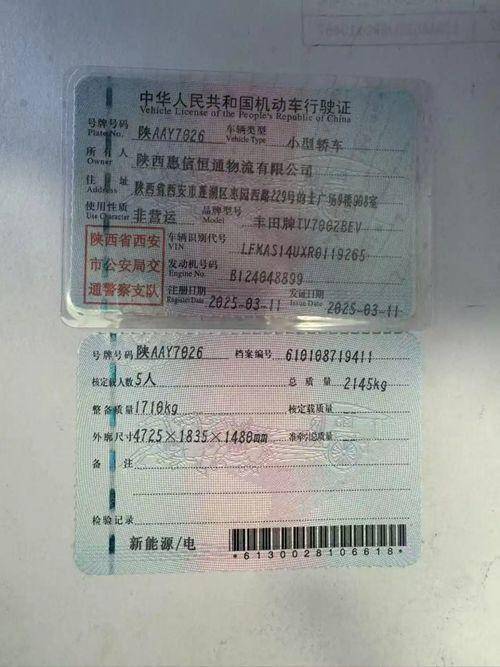 中华人民共和国机动车行驶证
Vehicle License of the People's Republic of China
号牌号码 陕AAY7026 车辆类型 小型轿车
Plate No. Vehicle Type
所有人 陕西惠信恒通物流有限公司
Owner
住址 陕西省西安市莲湖区枣园西路229号的士广场9楼908室
Address
使用性质 非营运 品牌型号 丰田牌TV7002BEV
Use Character Model
陕西省西安
市公安局交
通警察支队
车辆识别代号 LFMAS14UXR0119265
VIN
发动机号码 B124048899
Engine No.
注册日期 2025-03-11 发证日期 2025-03-11
Register Date Issue Date
号牌号码 陕AAY7026 档案编号 610108719411
核定载人数 5人 总质量 2145kg
整备质量 1710kg 核定载质量
外廓尺寸 4725×1835×1480mm 准牵引总质量
备注
检验记录
新能源/电
*6130028106618*